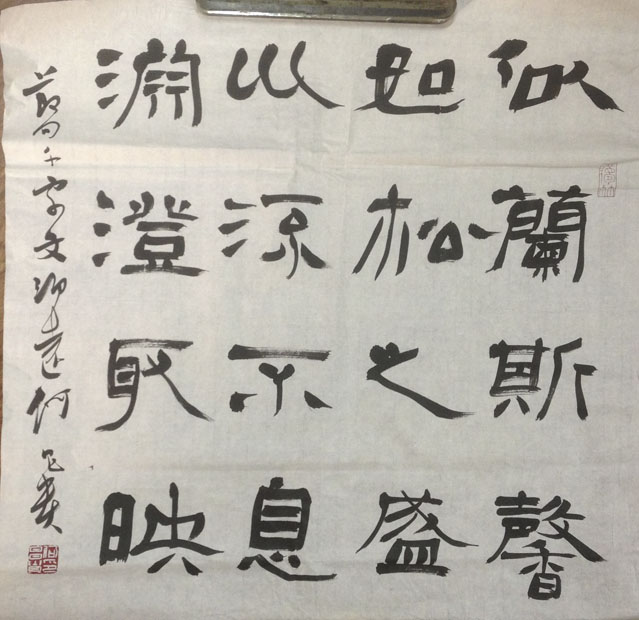 似蘭斯馨
如松之盛
川流不息
淵澄取映
千字文